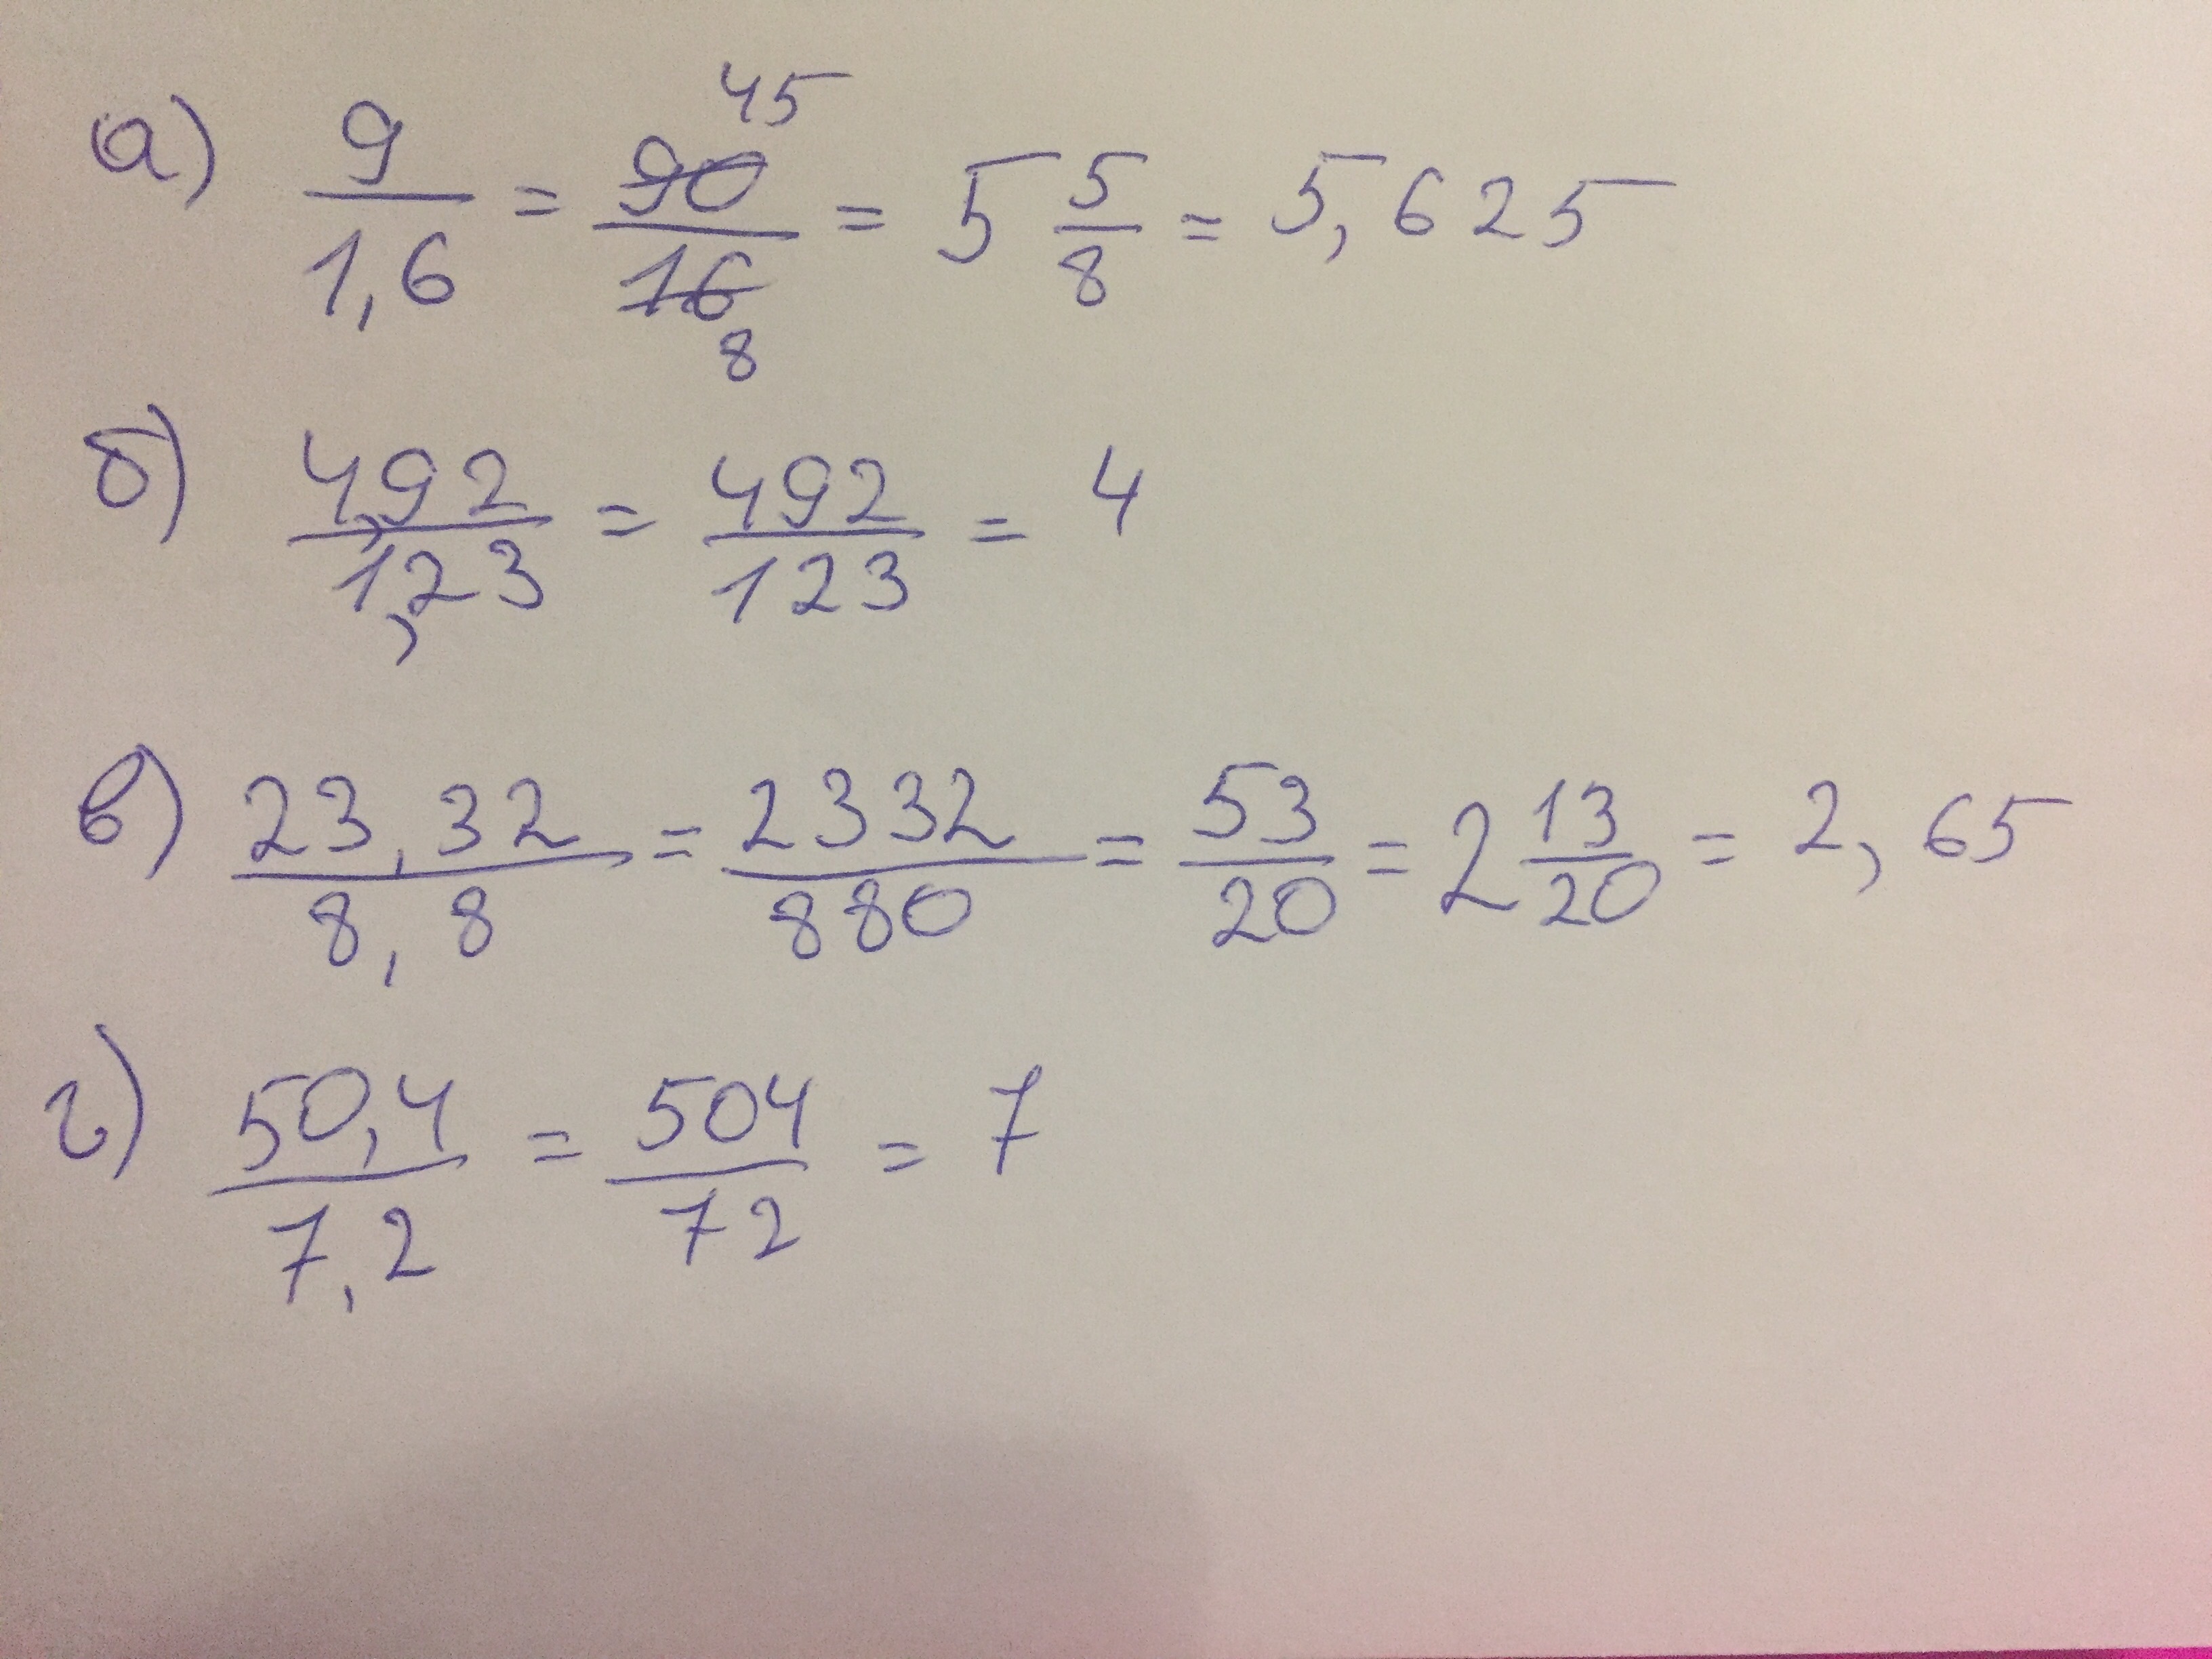 а) 9/1,6 = 90/16 45/8 = 5 5/8 = 5,625
б) 4,92/1,23 = 492/123 = 4
в) 23,32/8,8 = 2332/880 = 53/20 = 2 13/20 = 2,65
г) 50,4/7,2 = 504/72 = 7